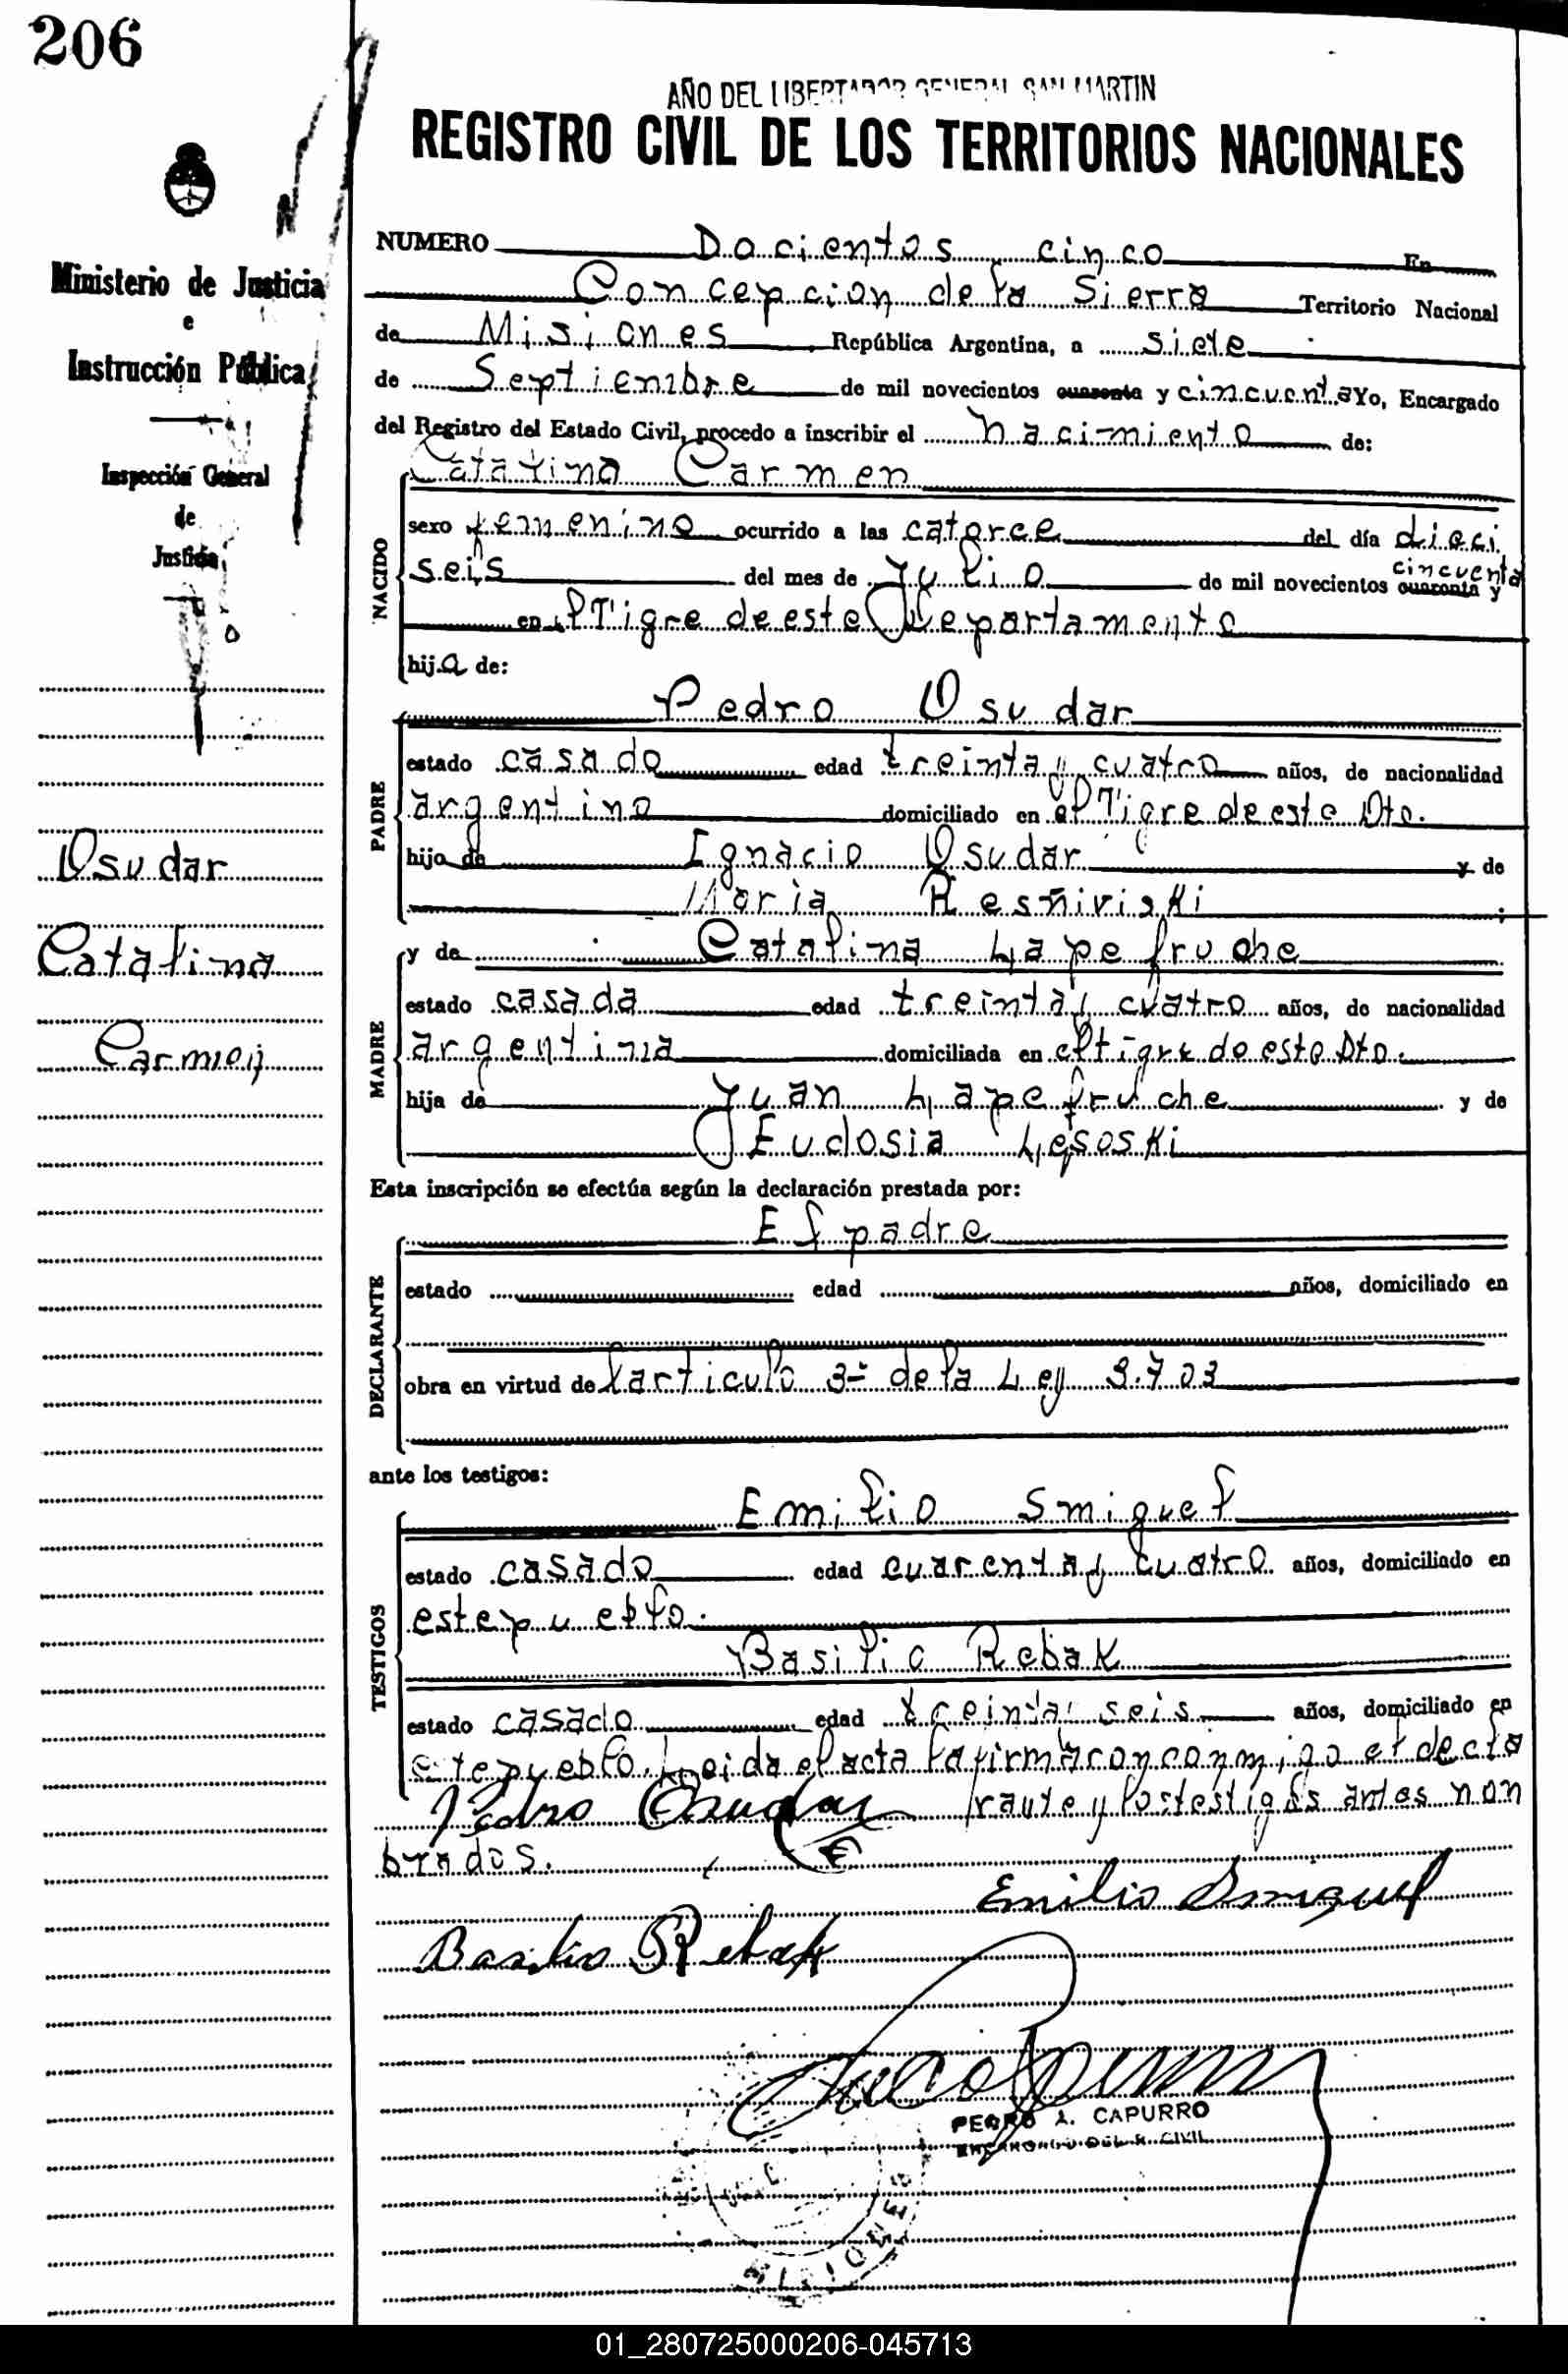 206
Ministerio de Justicia
e
Instrucción Pública
Inspección General
de
Justicia
Osudar
Catalina
Carmen
AÑO DEL LIBERTADOR GENERAL SAN MARTIN
REGISTRO CIVIL DE LOS TERRITORIOS NACIONALES
NUMERO Docientos cinco En
Concepcion de la Sierra Territorio Nacional
de Misiones República Argentina, a siete
de Septiembre de mil novecientos cuarenta y cincuenta Yo, Encargado
del Registro del Estado Civil, procedo a inscribir el nacimiento de:
Catalina Carmen
NACIDO
sexo femenino ocurrido a las catorce del día dieci
seis del mes de Julio de mil novecientos cuarenta y cincuenta
en el Tigre de este Departamento
hija de:
Pedro Osudar
PADRE
estado casado edad treinta y cuatro años, de nacionalidad
argentino domiciliado en el Tigre de este Dto.
hijo de Ignacio Osudar y de
Maria Resñiviski
MADRE
y de Catalina Lapefruche
estado casada edad treinta y cuatro años, de nacionalidad
argentina domiciliada en el tigre de este Dto.
hija de Juan Lapefruche y de
Eudosia Lesoski
Esta inscripción se efectúa según la declaración prestada por:
El padre
DECLARANTE
estado edad años, domiciliado en
obra en virtud del articulo 3º de la Ley 3.703
ante los testigos:
Emilio Smiguel
TESTIGOS
estado casado edad cuarenta y cuatro años, domiciliado en
este pueblo.
Basilio Rebak
estado casado edad treinta seis años, domiciliado en
este pueblo. Leida el acta la firmaron conmigo el decla
Pedro Osudar rante y los testigos antes non
brados.
Emilio Smiguel
Basilio Rebak
PEDRO A. CAPURRO
ENCARGADO DEL R. CIVIL
MISIONES
01_280725000206-045713